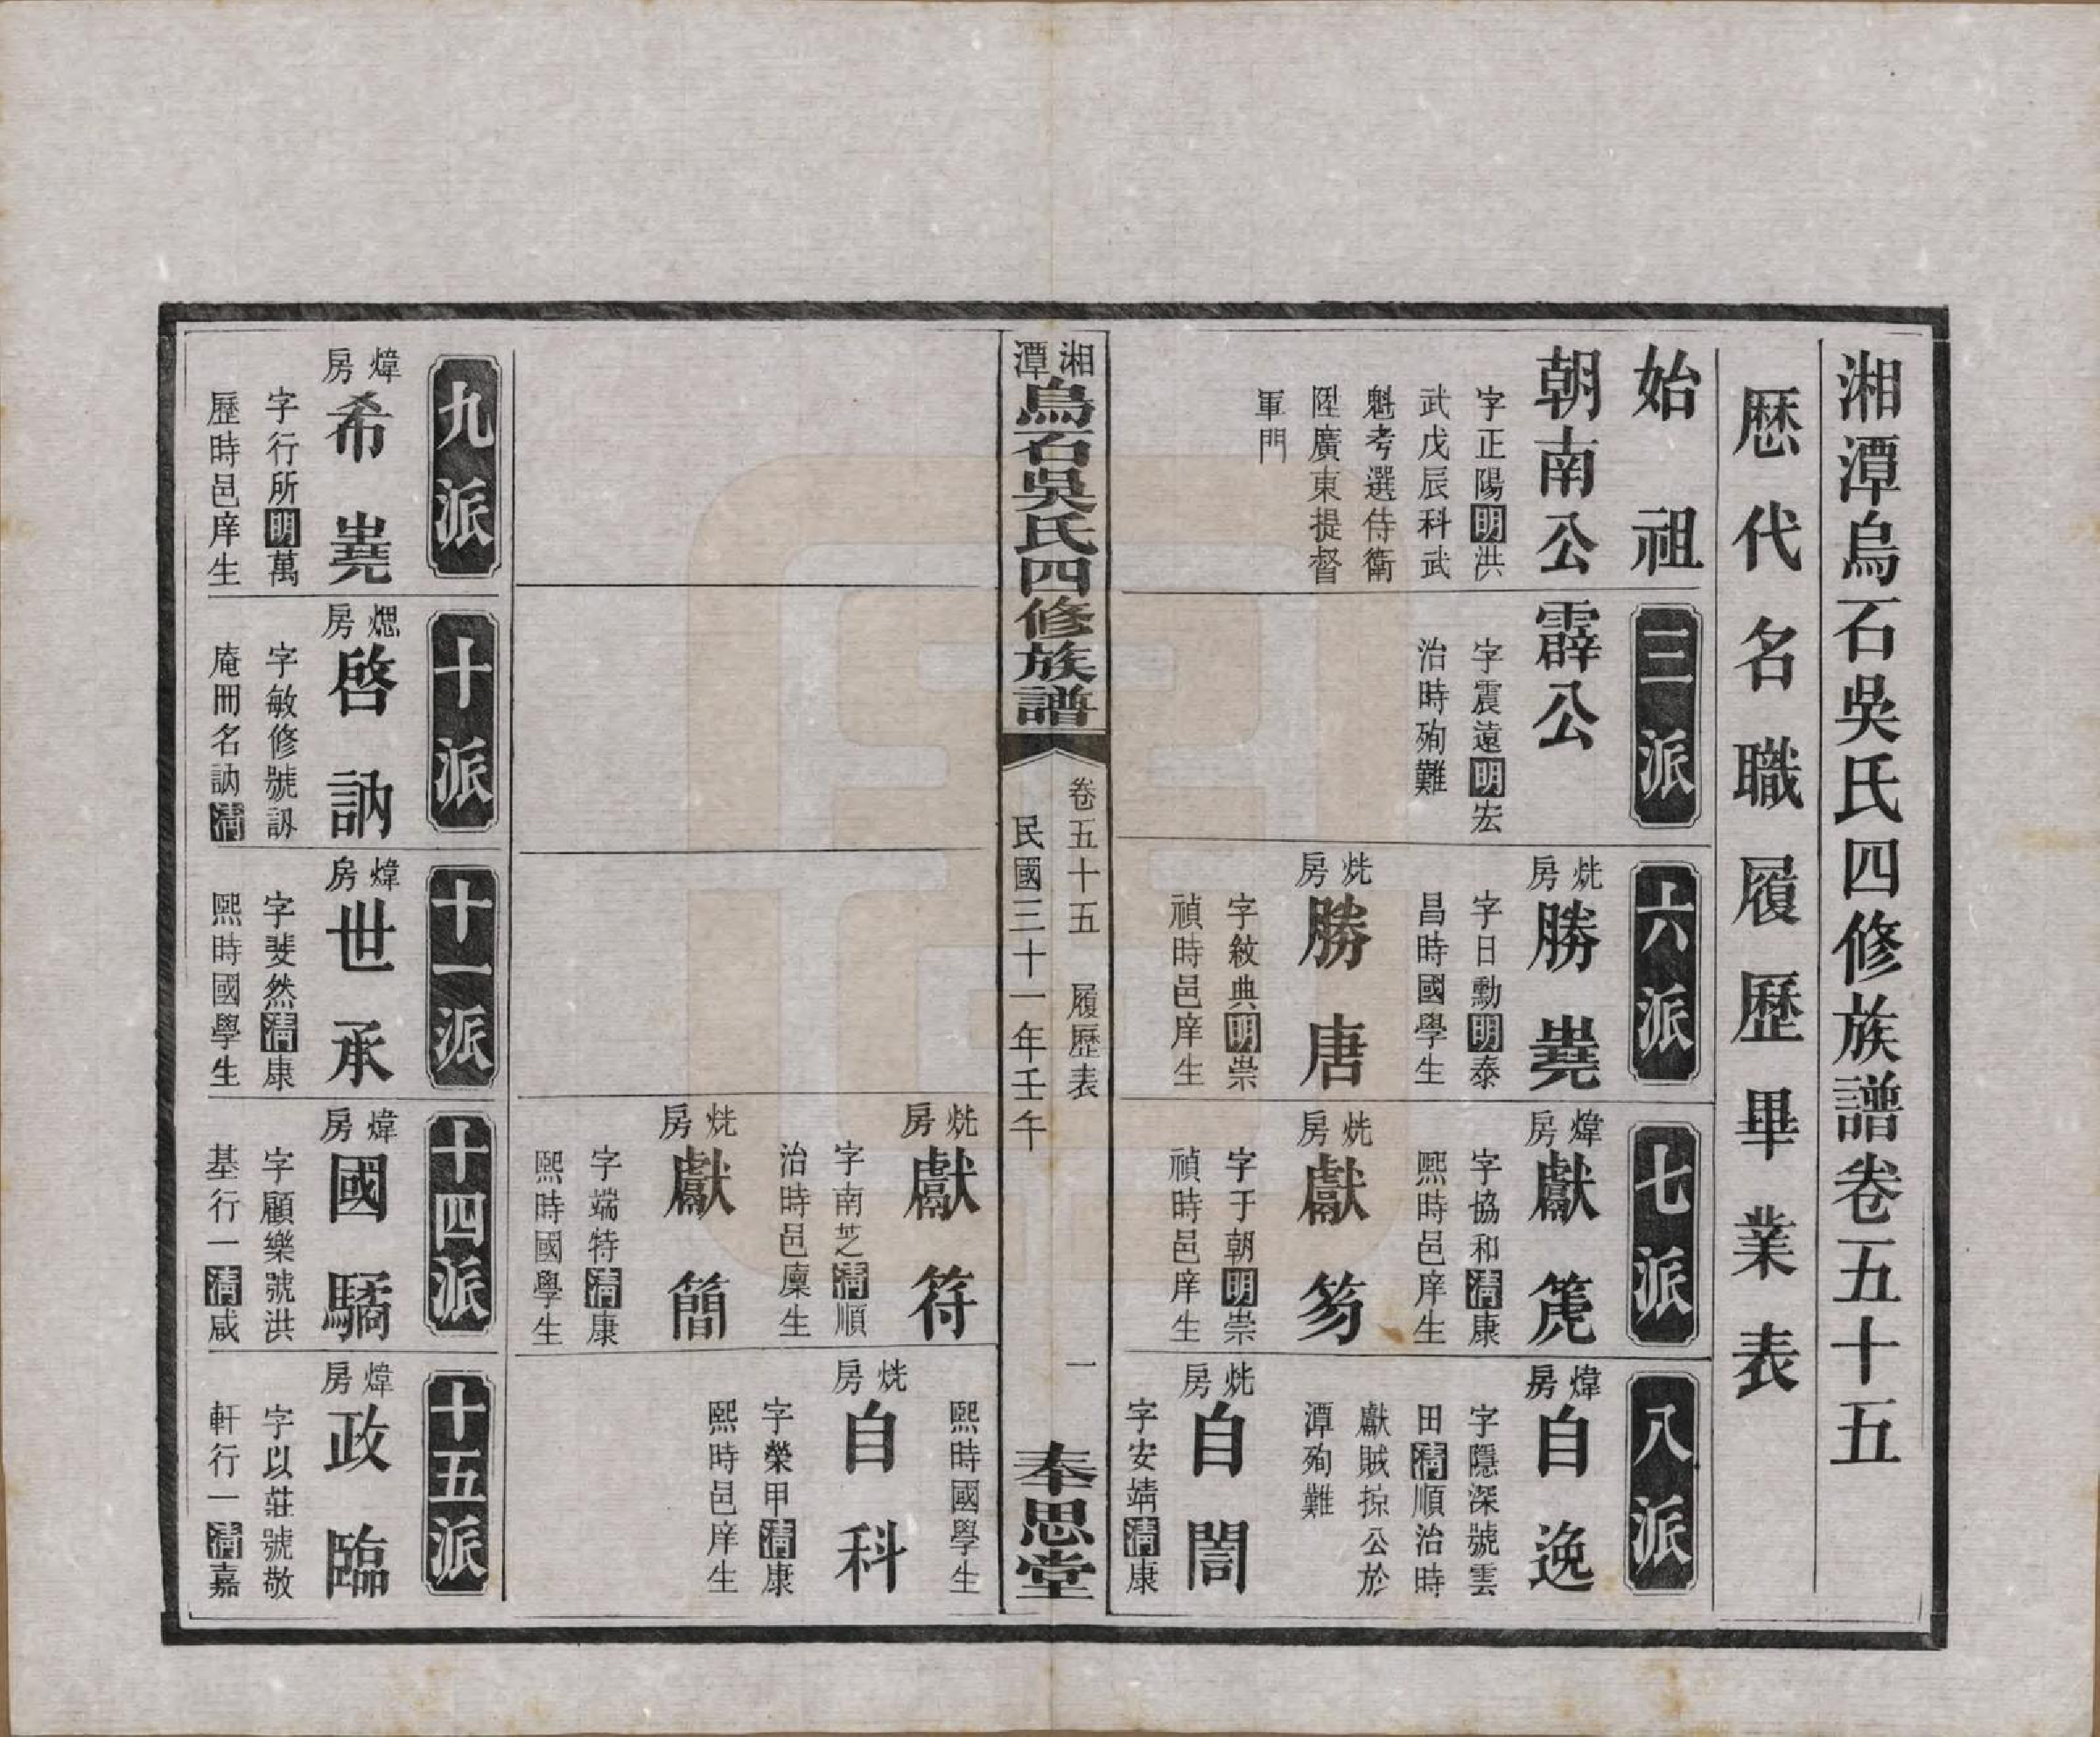 湘潭烏石吳氏四修族譜卷五十五
歷代名職履歷畢業表
始祖
朝南公
字正陽明洪
武戊辰科武
魁考選侍衛
陞廣東提督
軍門
三派
霹公
字震遠明宏
治時殉難
六派
烍房
勝嶤
字日勳明泰
昌時國學生
烍房
勝唐
字紋典明崇
禎時邑庠生
七派
煒房
獻箎
字協和清康
熙時邑庠生
烍房
獻笏
字于朝明崇
禎時邑庠生
八派
煒房
自逸
字隱深號雲
田清順治時
獻賊掠公於
潭殉難
烍房
自誾
字安靖清康
湘潭烏石吳氏四修族譜
卷五十五　履歷表　一
民國三十一年壬午
奉思堂
烍房
獻符
字南芝清順
治時邑廩生
烍房
獻簡
字端特清康
熙時國學生
熙時國學生
烍房
自科
字榮甲清康
熙時邑庠生
九派
煒房
希嶤
字行所明萬
歷時邑庠生
十派
煾房
啓訥
字敏修號訒
庵冊名訥清
十一派
煒房
世承
字斐然清康
熙時國學生
十四派
煒房
國驕
字顧樂號洪
基行一清咸
十五派
煒房
政臨
字以莊號敬
軒行一清嘉